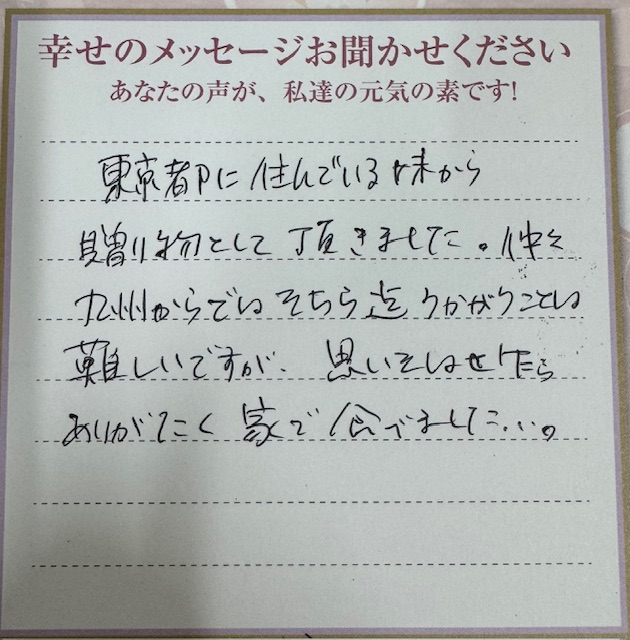 幸せのメッセージお聞かせください
あなたの声が、私達の元気の素です!
東京都に住んでいる妹から
贈り物として頂きました。仲々
九州からでは そちら迄 うかがうことは
難しいですが、思いをはせながら
ありがたく 家で 食べました…。